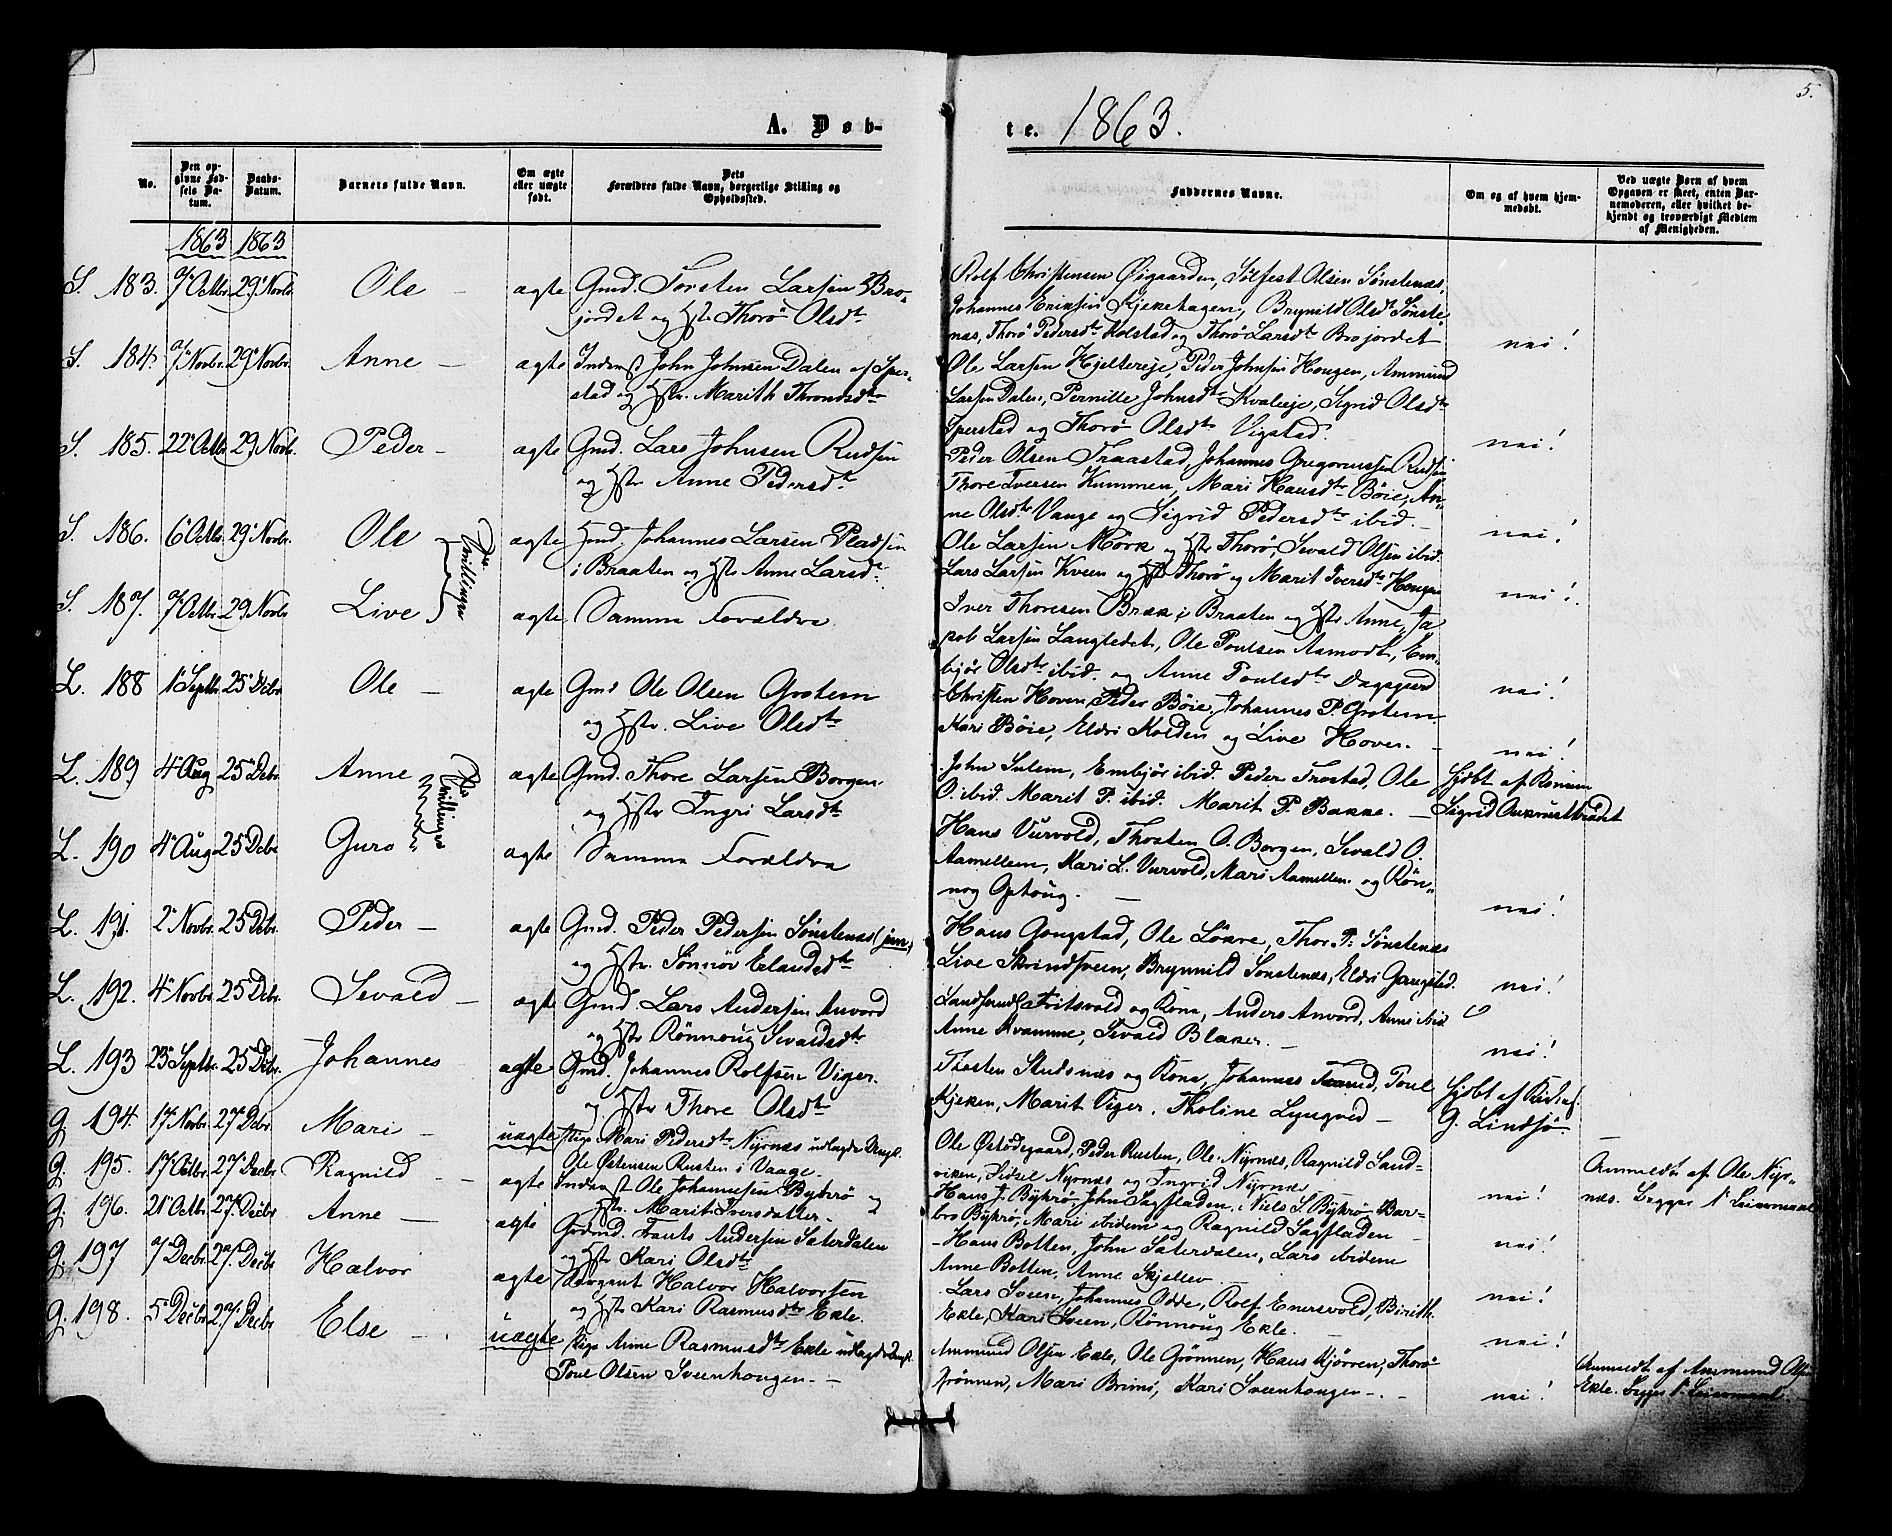 5.
A. Døb-
te. 1863.
No.
Den opgivne Fødsels Datum.
Daabs-Datum.
Barnets fulde Navn.
Om ægte eller uægte født.
Dets Forældres fulde Navn, borgerlige Stilling og Opholdssted.
Faddernes Navne.
Om og af hvem hjemmedøbt.
Ved uægte Børn af hvem Opgaven er skeet, enten Barnemoderen, eller hvilket bekjendt og troværdigt Medlem af Menigheden.
1863 1863
S. 183. 7 Octbr. 29 Novbr. Ole – ægte Gmd. Torsten Larsen Bro-
jordet og Hstr Thorø Olsdtr
Rolf Christensen Øigaarden, Sølfest Olsen Sønstenæs,
Johannes Eriksen Kjekehagen, Brynild Olsdtr Sønste-
næs, Thorø Pedersdtr Kolstad og Thorø Larsdtr Brojordet nei!
S. 184. 7 Novbr. 29 Novbr. Anne – ægte Inderst John Johnsen Dalen af Sper-
stad og Hstr. Marith Throndsdtr
Ole Larsen Hjeltereje, Peder Johnsen Hougen, Ammund
Larsen Dalen, Pernille Johnsdtr Kvaleeje, Sigrid Olsdtr
Sperstad og Thorø Olsdtr Vigstad. nei!
S. 185. 22 Octbr. 29 Novbr. Peder – ægte Gmd. Lars Johnsen Rudsen
og Hstr Anne Pedersdtr
Peder Olsen Traastad, Johannes Gregoriussen Rudsen
Thore Iversen Kummen, Mari Hansdtr Bøie, An-
ne Olsdtr Vange og Sigrid Pedersdtr ibid. – nei!
S. 186. 6 Octbr. 29 Novbr. Ole Tvillinger ægte Hmd. Johannes Larsen Pladsen
i Braaten og Hstr Anne Larsdtr
Ole Larsen Mørk og Hstr Thorø, Sevald Olsen ibid.
Lars Larsen Kveen og Hstr Thorø og Marit Iversdtr Hougen nei!
S. 187. 7 Octbr. 29 Novbr. Live ægte Samme Forældre
Iver Thoresen Bræk i Braaten og Hstr Anne, Ja-
kob Larsen Langledet, Ole Poulsen Aamodt, Em-
bjør Olsdtr ibid. og Anne Poulsdtr Dagsgard nei!
L. 188 1 Septbr. 25 Decbr Ole – ægte Gmd Ole Olsen Grotem
og Hstr. Live Olsdtr
Christen Hoven, Peder Bøie, Johannes P. Grotem
Kari Bøie, Eldri Kolden og Live Hoven. – nei!
L. 189 4 Aug 25 Debr. Anne Tvillinger ægte Gmd. Thore Larsen Borgen
og Hstr Ingri Larsdtr
John Sulem, Embjør ibid. Peder Frostad, Ole
O. ibid. Marit P. ibid. Marit P. Bakke. – Hjdbt af Konen
Sigrid Aukrusttrædet
L. 190 4 Aug 25 Debr Guro ægte Samme Forældre
Hans Vurvold, Thosten O. Borgen, Sevald O.
Aamellem, Kari L. Vurvold, Mari Aamellem og Røn-
nog Optoug. – nei!
L. 191. 2 Novbr. 25 Debr. Peder – ægte Gmd. Peder Pedersen Sønstenæs (jun.)
og Hstr. Sønnøv Erlandsdtr
Hans Gougstad, Ole Løkre, Thor P. Sønstenæs
Live Skrindsveen, Brynnild Sønstenæs, Eldri Gaugstad. nei!
L. 192. 4 Novbr. 25 Debr. Sevald – ægte Gmd. Lars Andersen Anvord
og Hstr Rønnoug Sevaldsdtr
Fritsvold og Kona, Anders Anvord, Anne ibid
Anne Kvamme, Sevald Blaker. – nei!
L. 193 23 Septbr. 25 Debr. Johannes ægte Gmd. Johannes Rolfsen Viger.
og Hstr Thore Olsdtr
Thosten Studsnæs og Kona, Johannes Poul
Kjeken, Marit Viger, Tholine Lyngved – Hjdbt af
G. Lindsø.
G. 194. 17 Novbr 27 Debr Mari – uægte Pige Mari Pedersdtr Nyrnæs udlagde
Ole Østensen Rusten i Vaage.
Ole Østodegaard, Peder Rusten, Ole Nyrnæs, Ragnild Sand-
viken, Sidsel Nyrnæs og Ingrid Nyrnæs nei! Anmeldt af Ole Nyr-
næs. Begges 1ste Leiermaal
G. 195. 17 Octbr. 27 Decbr Ragnild – ægte Inderst Ole Johannesen Bykrø og
Hstr. Marit Iversdatter.
Hans J. Bykrø, John Sagfladen, Niels S. Bykrø, Bar-
bro Bykrø, Mari ibidem og Ragnild Sagfladen nei!
G. 196. 21 Octbr. 27 Decbr Anne – ægte Grdmd. Frants Andersen Saterdalen
og Hstr Kari Olsdtr
Hans Botten, John Saterdalen, Lars ibidem
Anne Botten, Anne Skjellev nei!
G. 197 7 Decbr 27 Decbr Halvor ægte Sergeant Halvor Halvorsen
og Hstr Kari Rasmusdtr Ekle.
Lars Sveen, Johannes Odde, Rolf Enersvold, Birith
Ekle, Kari Sveen, Rønnoug Ekle. nei!
G. 198. 5 Decbr 27 Decbr Else – uægte Pige Anne Rasmusdtr Ekle udlagde
Poul Olsen Sveenhougen –
Ammund Olsen Ekle, Ole Grønnen, Hans Kjørren, Thorø
Grønnen, Mari Brimi, Kari Sveenhougen – nei! Anmeldt af Ammund Olsen
Ekle. Begges 1ste Leiermaal.